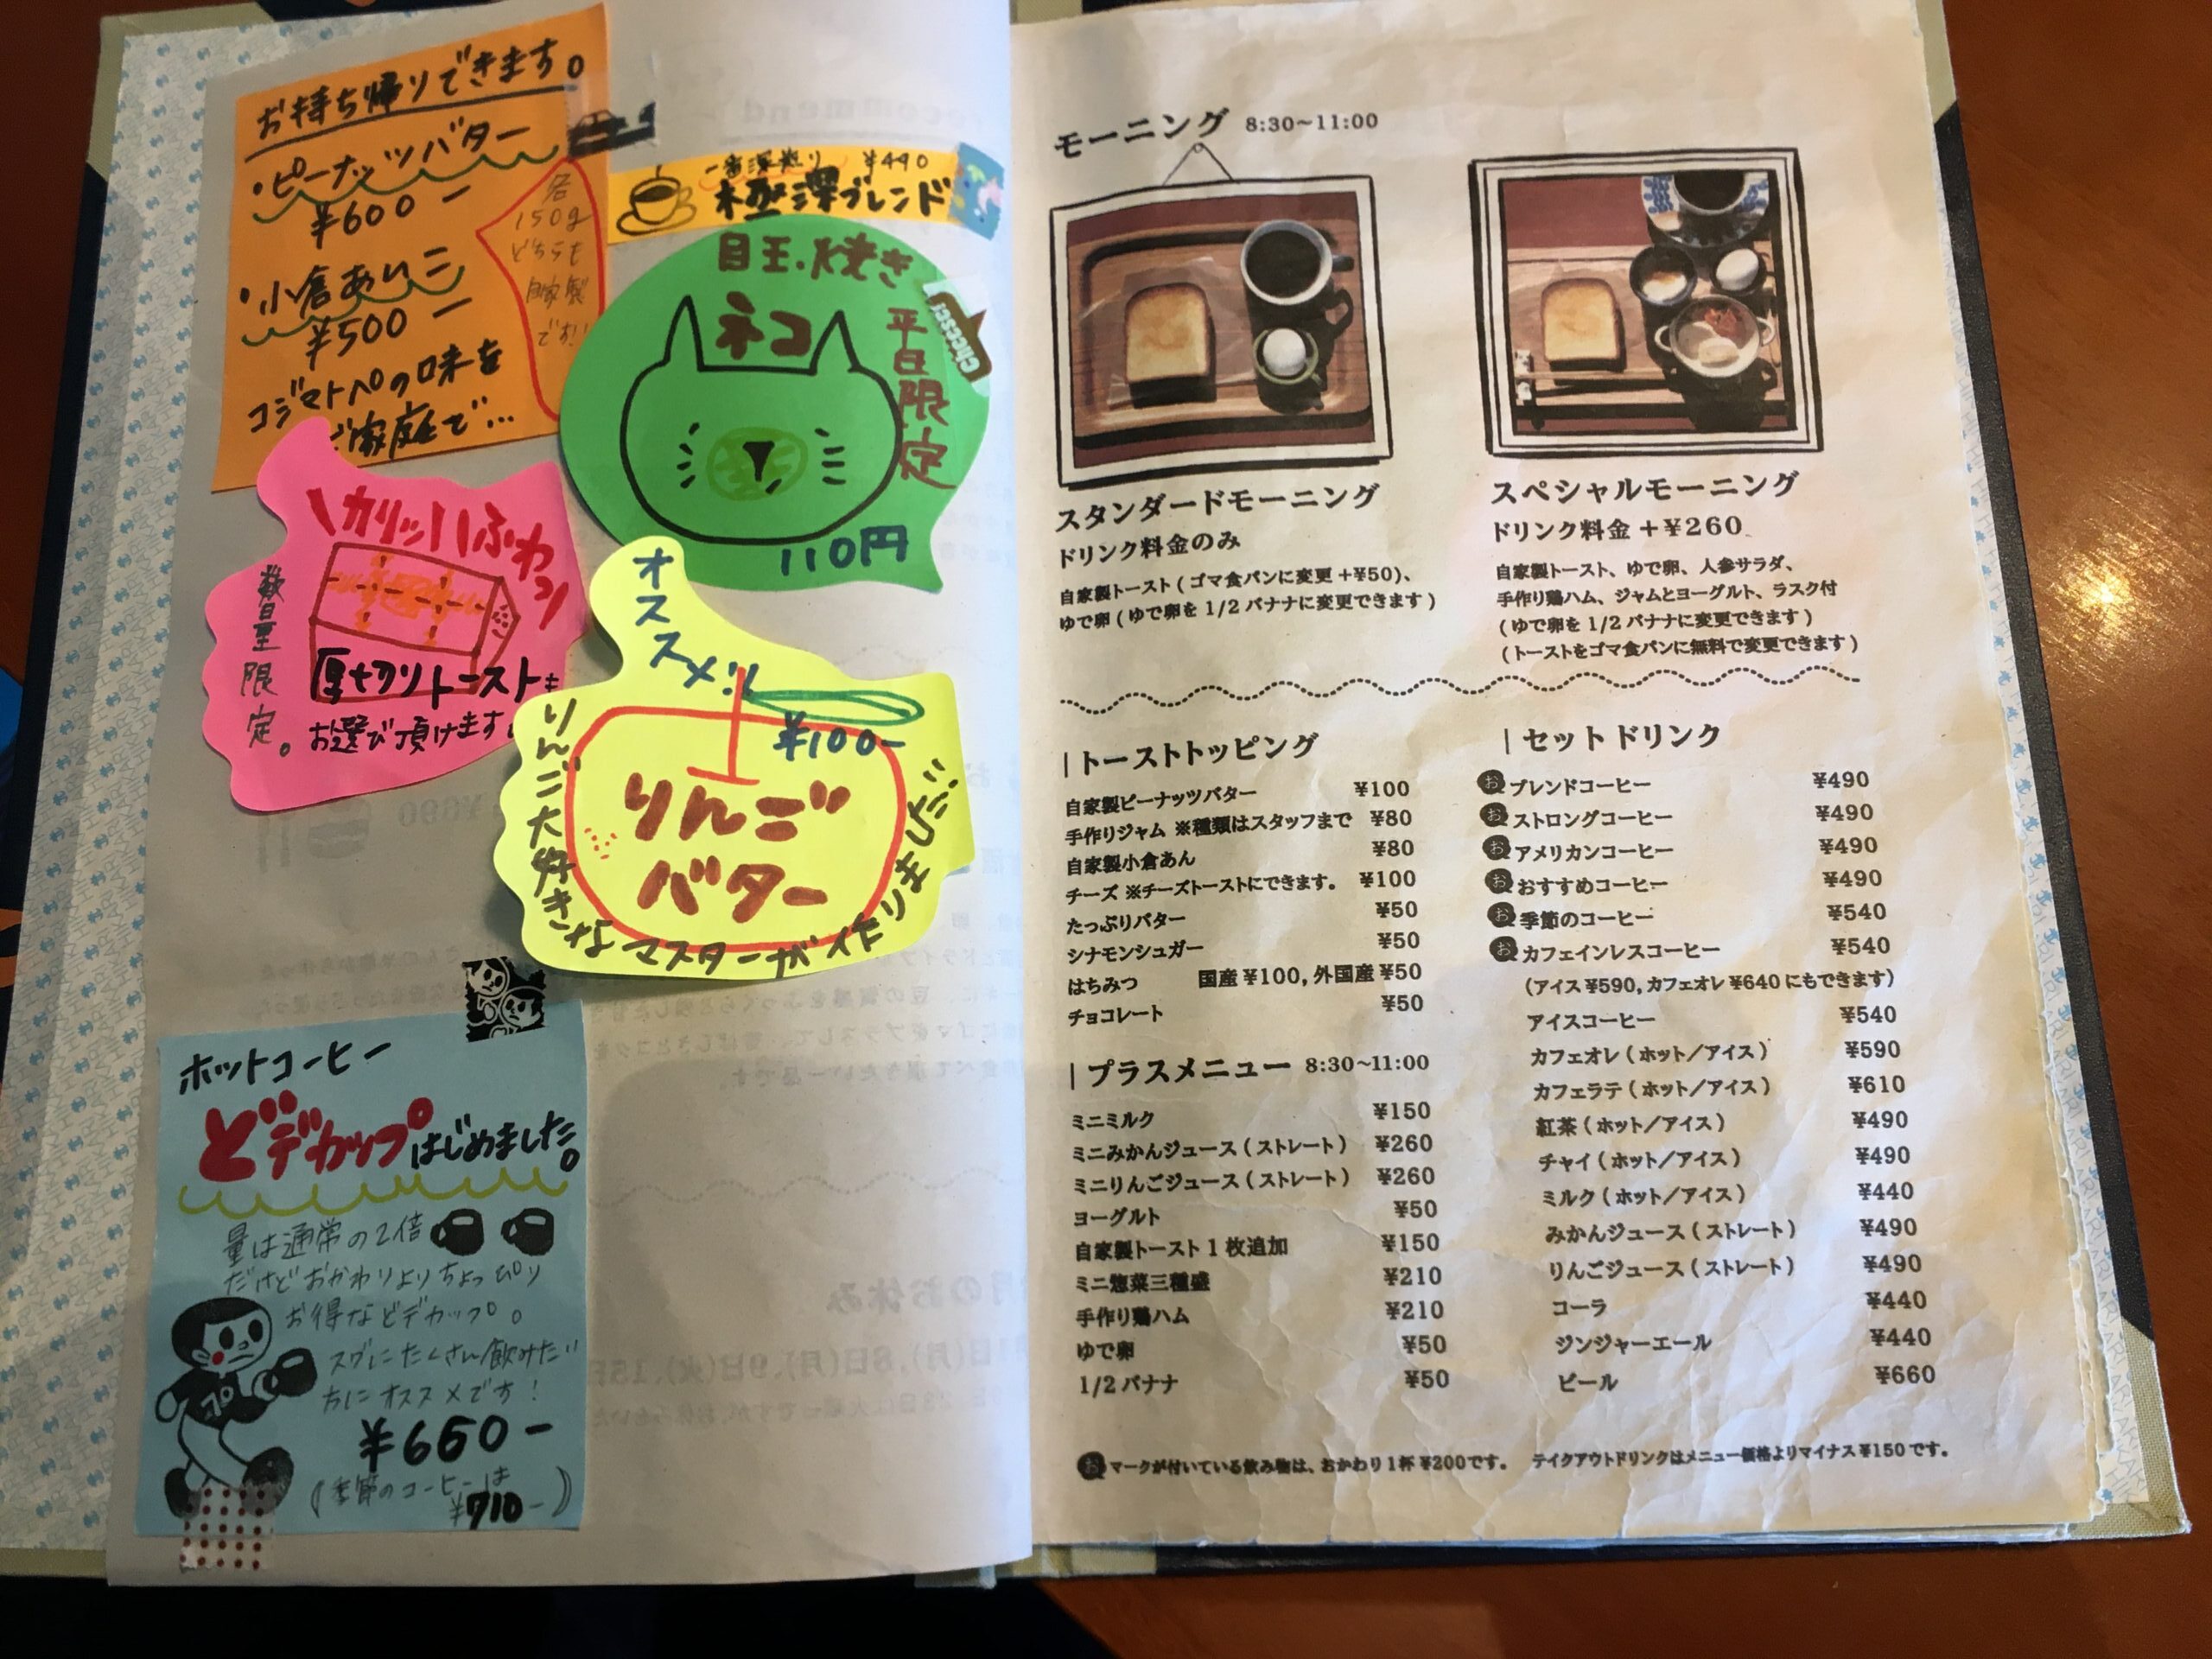 お持ち帰りできます。
・ピーナッツバター
¥600-
・小倉あんこ
¥500-
コジマトペの味を
ご家庭で…
各
150g
どちらも
自家製
です!
一番深煎り ¥490
極深ブレンド
目玉焼き
ネコ
平日限定
Cheese!
110円
カリッ ふわっ
数量限定。
厚切りトーストも
お選び頂けます。
オススメ!!
¥100-
りんご
バター
りんご大好きなマスターが作りました!!
ホットコーヒー
どデカップはじめました。
量は通常の2倍
だけどおかわりよりちょっぴり
お得などデカップ。
スグにたくさん飲みたい
方にオススメです!
¥660-
(季節のコーヒーは
¥710-)
モーニング 8:30~11:00
スタンダードモーニング
ドリンク料金のみ
自家製トースト(ゴマ食パンに変更+¥50)、
ゆで卵(ゆで卵を1/2バナナに変更できます)
スペシャルモーニング
ドリンク料金+¥260
自家製トースト、ゆで卵、人参サラダ、
手作り鶏ハム、ジャムとヨーグルト、ラスク付
(ゆで卵を1/2バナナに変更できます)
(トーストをゴマ食パンに無料で変更できます)
|トーストトッピング
自家製ピーナッツバター ¥100
手作りジャム ※種類はスタッフまで ¥80
自家製小倉あん ¥80
チーズ ※チーズトーストにできます。 ¥100
たっぷりバター ¥50
シナモンシュガー ¥50
はちみつ 国産¥100,外国産¥50
チョコレート ¥50
|プラスメニュー 8:30~11:00
ミニミルク ¥150
ミニみかんジュース(ストレート) ¥260
ミニりんごジュース(ストレート) ¥260
ヨーグルト ¥50
自家製トースト1枚追加 ¥150
ミニ惣菜三種盛 ¥210
手作り鶏ハム ¥210
ゆで卵 ¥50
1/2バナナ ¥50
|セットドリンク
お ブレンドコーヒー ¥490
お ストロングコーヒー ¥490
お アメリカンコーヒー ¥490
お おすすめコーヒー ¥490
お 季節のコーヒー ¥540
お カフェインレスコーヒー ¥540
(アイス¥590,カフェオレ¥640にもできます)
アイスコーヒー ¥540
カフェオレ(ホット/アイス) ¥590
カフェラテ(ホット/アイス) ¥610
紅茶(ホット/アイス) ¥490
チャイ(ホット/アイス) ¥490
ミルク(ホット/アイス) ¥440
みかんジュース(ストレート) ¥490
りんごジュース(ストレート) ¥490
コーラ ¥440
ジンジャーエール ¥440
ビール ¥660
お マークが付いている飲み物は、おかわり1杯¥200です。 テイクアウトドリンクはメニュー価格よりマイナス¥150です。